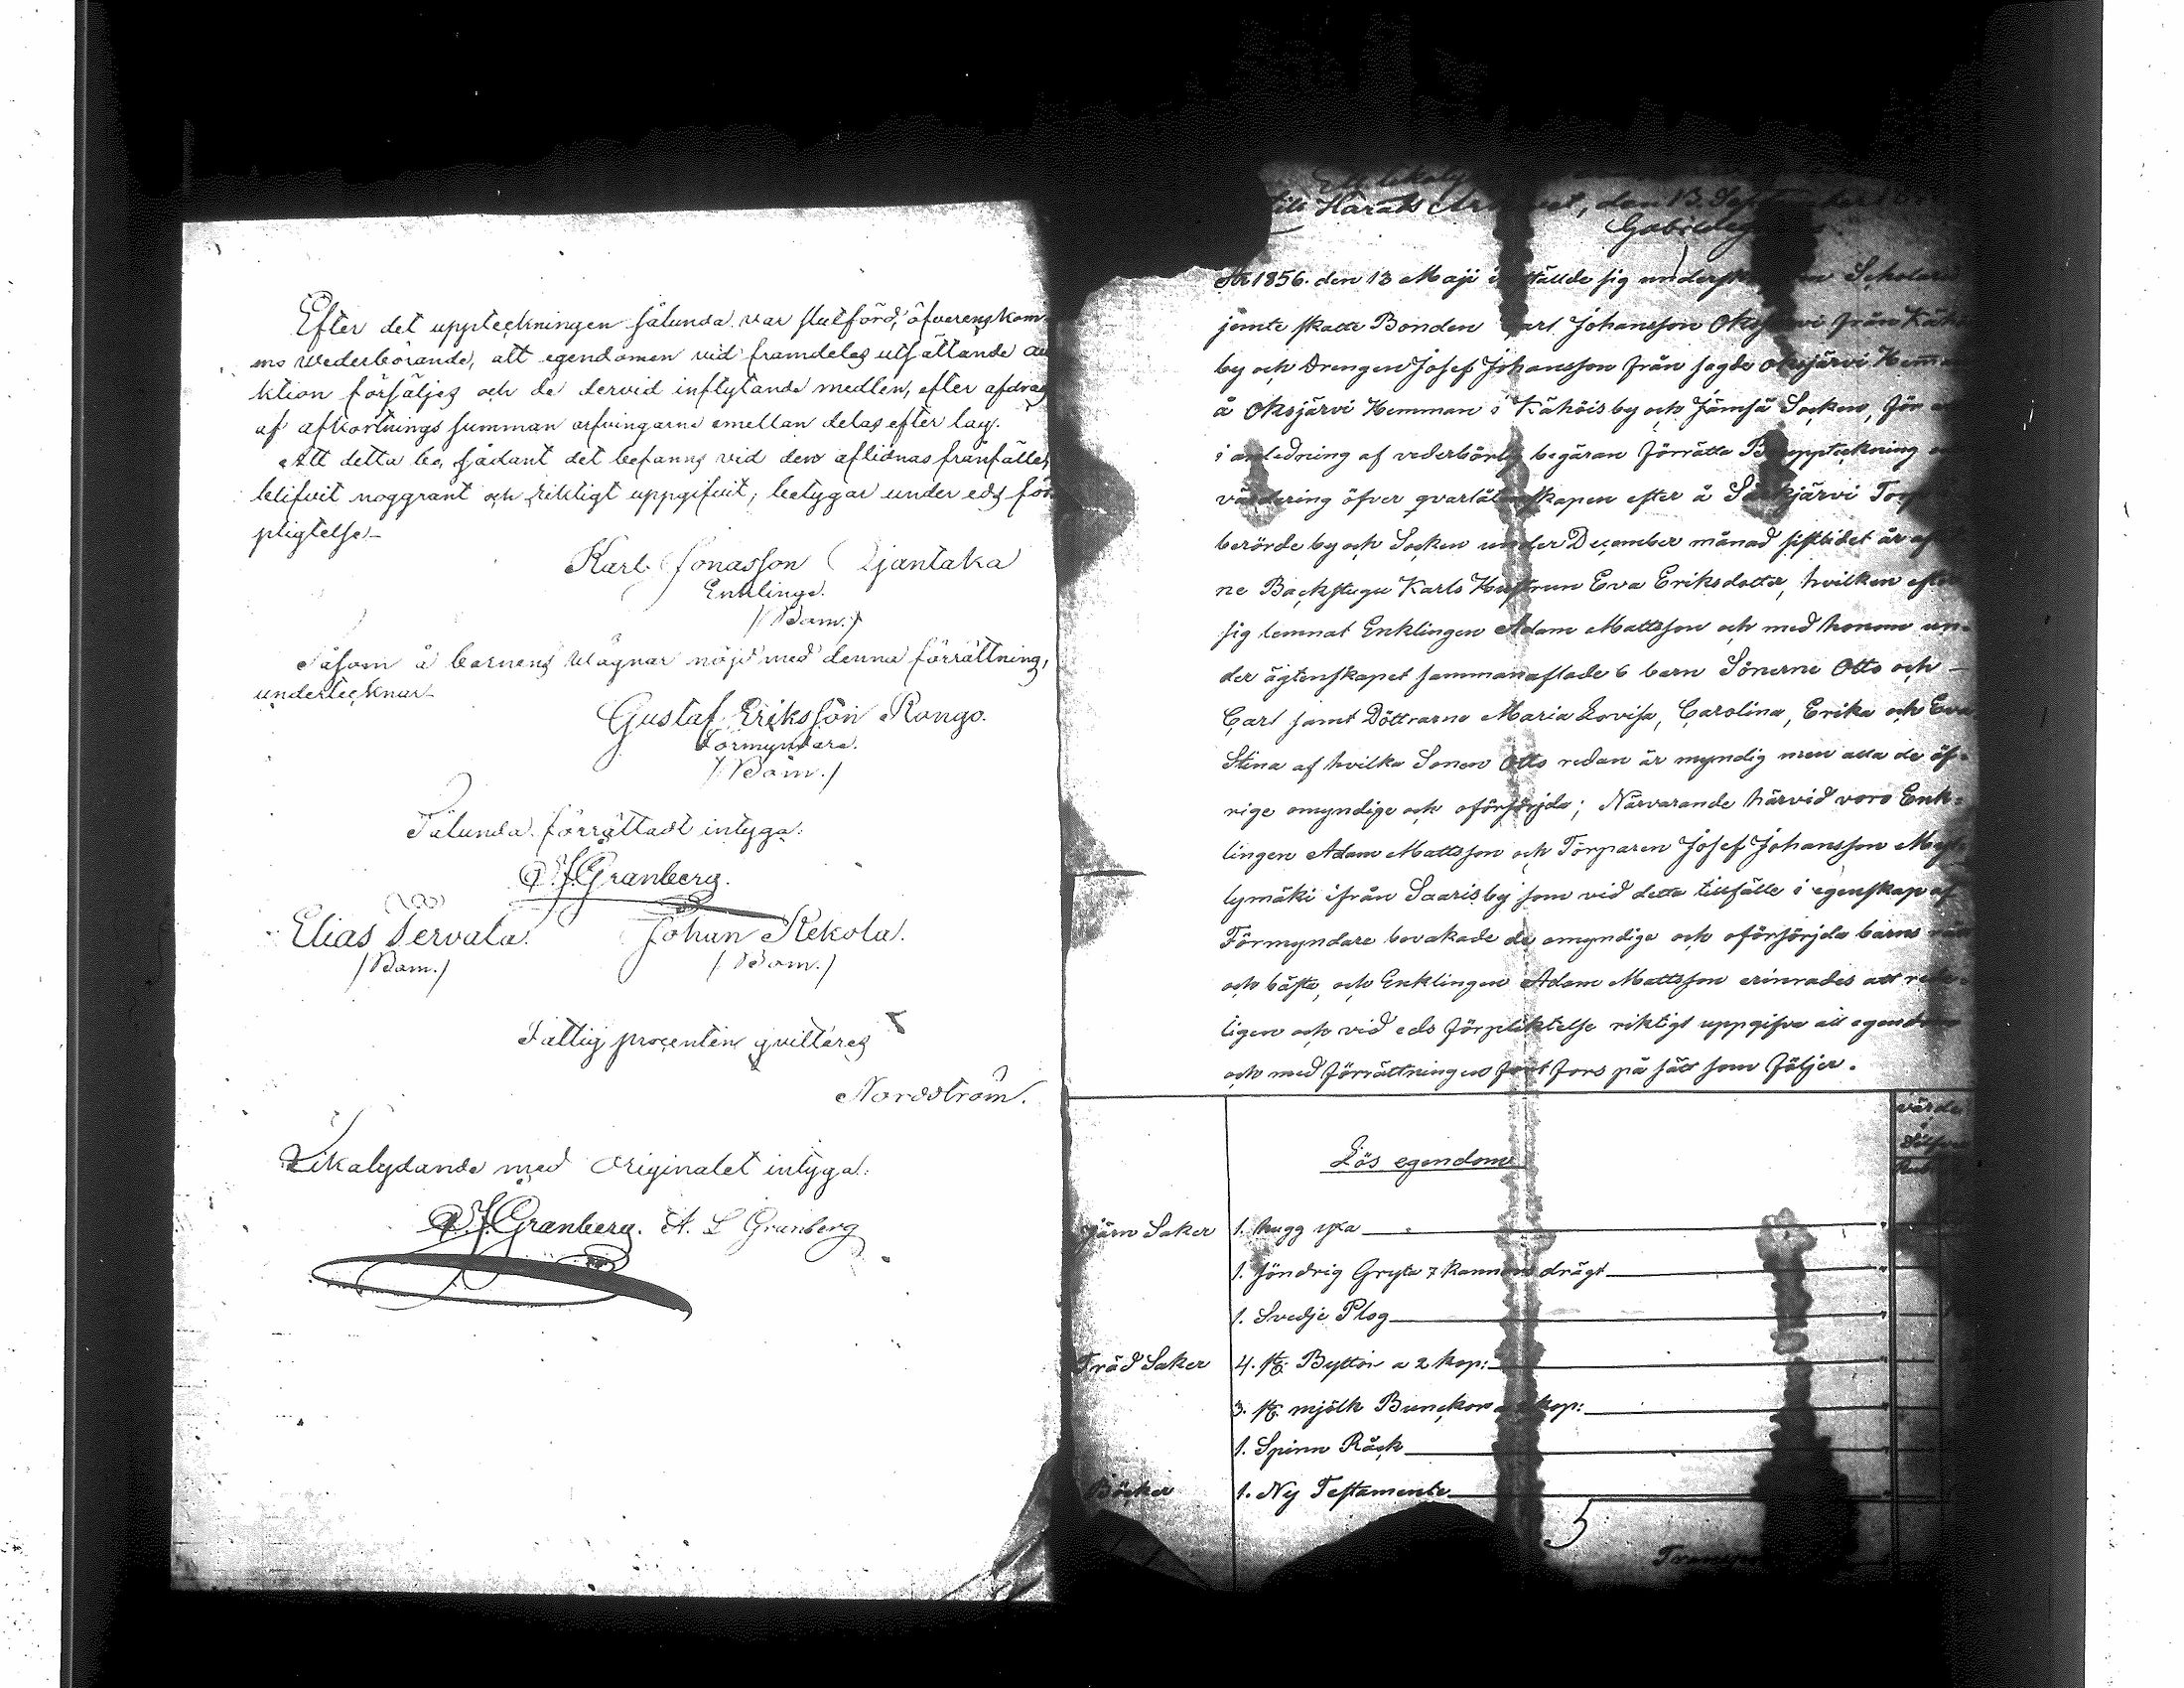 Efter det uppteckningen sålunda var slutförd, öfverenskom-
mo Wederbörande, att egendomen vid framdeles utsättande au
ktion försäljes och de dervid inflytande medlen, efter afdrag
af afkortnings summan arfvingarne emellan delas efter lag.
Att detta bo, sådant det befanns vid den aflidnas frånfälle,
blifvit noggrant och riktigt uppgifvit, betygar under eds för
pligtelse
Karl Jonasson Ojantaka
Enkling.
/Bom./
Såsom å barnens vägnar nöjd med denna förrättning,
undertecknar
Gustaf Eriksson Rongo.
Förmyndare.
/Bom./
Sålunda förrättadt intyga:
Granberg.
Elias Servala. Johan Kekola.
/Bom./ /Bom./
Fattig procenten qvitteras
Nordström.
Likalydande med Originalet intyga:
Granberg. A. L Granberg
till Härads den 13
År 1856. den 13 Maji ställde sig
jemte skatte Bonden Carl Johansson Oksjärvi från
by och Drengen Josef Johansson från sagde Oksjärvi
å Oksjärvi Hemman i Kähöis by och Jämsä Socken, för
i anledning af vederbörlig begäran förrätta uppteckning
värdering öfver qvarlåtenskapen efter å
berörde by och Socken under December månad sistlidet år
ne Backstugu Karls Hustrun Eva Eriksdotter, hvilken efter
sig lemnat Enklingen Adam Mattsson och med honom un-
der ägtenskapet sammanaflade 6 barn Sönerne Otto och
Carl samt Döttrarne Maria Lovisa, Carolina, Erika och Eva
Stina af hvilka Sonen Otto redan är myndig men alla de öf-
rige omyndige och oförsörjda; Närvarande härvid voro Enk-
lingen Adam Mattsson och Torparen Josef Johansson
lymäki ifrån Saaris by som vid detta tillfälle i egenskap af
Förmyndare bevakade de omyndige och oförsörjda barns
och bästa, och Enklingen Adam Mattsson erinrades att rede-
ligen och vid eds förpliktelse riktigt uppgifva all egendom
och med förrättningen fort fors på sätt som följer.
värde
Lös egendom
Järn Saker 1. hugg yxa
1. Söndrig Gryta 7 kannors drägt
1. Svedje Plog
Träd Saker 4. st. Byttor a 2 kop:
3. st. mjölk Bunckor kop:
1. Spinn Råck
Böcker 1. Ny Testamente
5